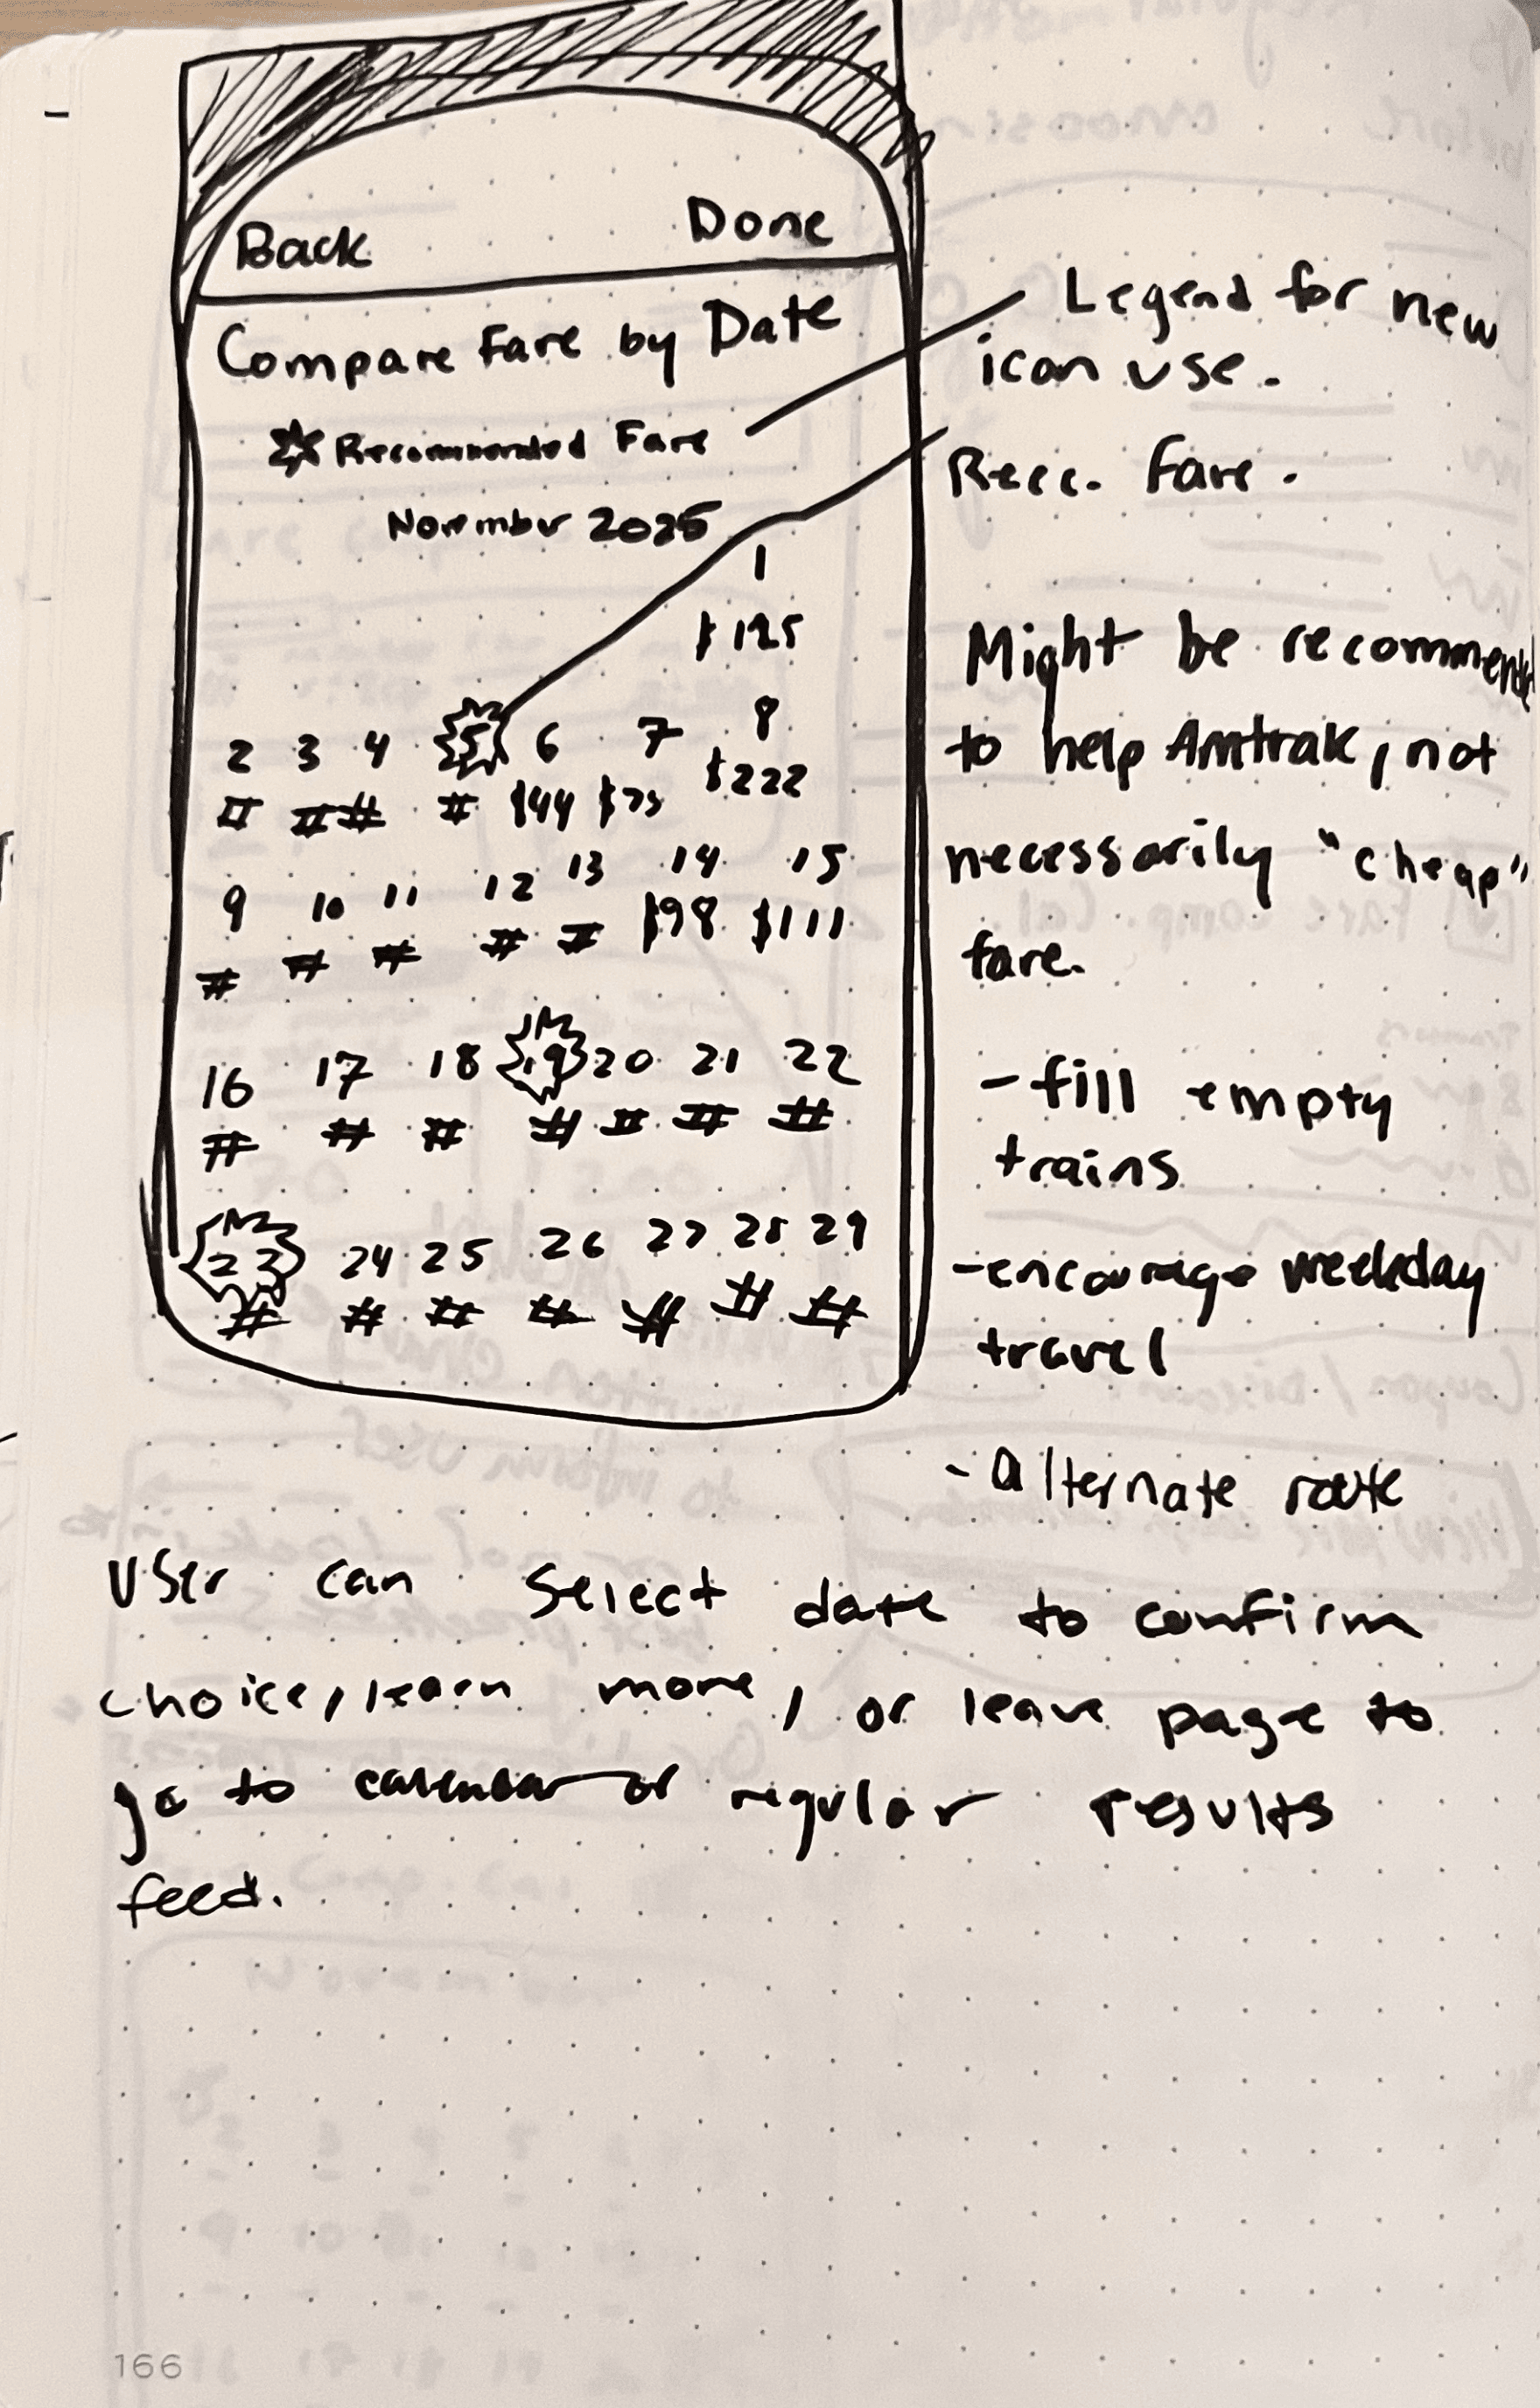 Back Done
Compare Fare by Date
Recommended Fare
November 2025
1
$125
2 3 4 5 6 7 8
# # # # $44 $75 $222
9 10 11 12 13 14 15
# # # # # $98 $111
16 17 18 19 20 21 22
# # # # # # #
23 24 25 26 27 28 29
# # # # # # #
Legend for new
icon use.
Recc. Fare.
Might be recommend
to help Amtrak, not
necessarily "cheap"
fare.
- fill empty
trains
- encourage weekday
travel
- Alternate route
User can select date to confirm
choice, learn more, or leave page to
go to calendar or regular results
feed.
166